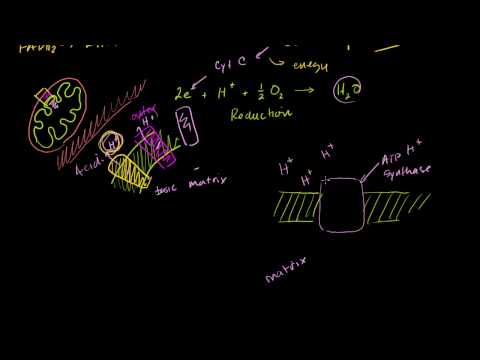 Cyt C
energy
2e⁻ + H⁺ + ½ O₂ → H₂O
Reduction
outer
H⁺
H⁺
Acidic
basic matrix
H⁺
H⁺
H⁺
ATP H⁺
synthase
matrix